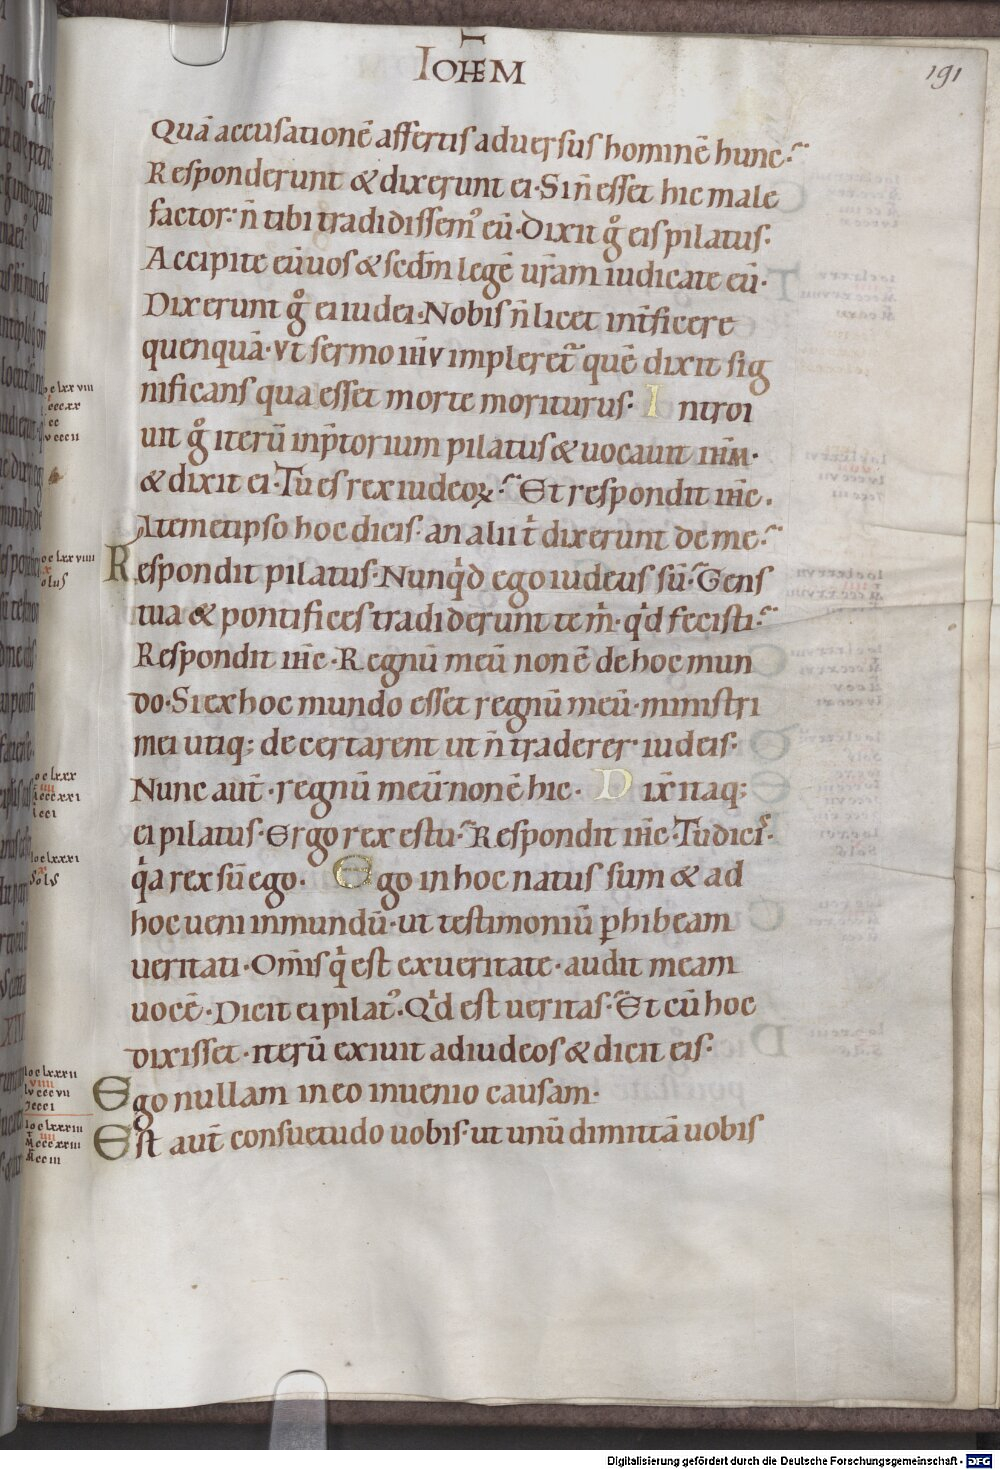 IOHEM
191
Quā accusationē affertis adversus hominē hunc·
Responderunt & dixerunt ei· Si n̄ esset hic male
factor· n̄ tibi tradidissem᾽ eū· Dixit g̊ eis pilatus·
Accipite eū uos & scdm̄ legē ur̄am iudicate eū·
Dixerunt g̊ ei iudei· Nobis n̄ licet int̄ficere
quenquā· vt sermo iħv impleret᷒ quē dixit sig
nificans qua esset morte moriturus· Introi
uit g̊ iterū inp̄torium pilatus & uocauit iħm·
& dixit ei· Tu es rex iudeoꝝ· Et respondit iħc·
Atemetipso hoc dicis· an alii t̄ dixerunt de me·
Respondit pilatus· Nunqͥd ego iudeus sū· Gens
tua & pontifices tradiderunt te m̍· qͥd fecisti·
Respondit iħc· Regnū meū non ē de hoc mun
do· Si ex hoc mundo esset regnū meū· ministri
mei utiq; decertarent ut n̄ traderer iudeis·
Nunc aut̄· regnū meū non ē hic· Dix̄ itaq;
ei pilatus· Ergo rex es tu· Respondit iħc· Tu dicis·
qͥa rex sū ego· Ego in hoc natus sum & ad
hoc ueni inmundū· ut testimoniū ꝑhibeam
ueritati· Om̄is qͥ est ex ueritate· audit meam
uocē· Dicit ei pilat᾽· Qͥd est ueritas· Et cū hoc
dixisset· iterū exiuit ad iudeos & dicit eis·
Ego nullam in eo inuenio causam·
Est aut̄ consuetudo uobis· ut unū dimittā uobis
Digitalisierung gefördert durch die Deutsche Forschungsgemeinschaft - DFG